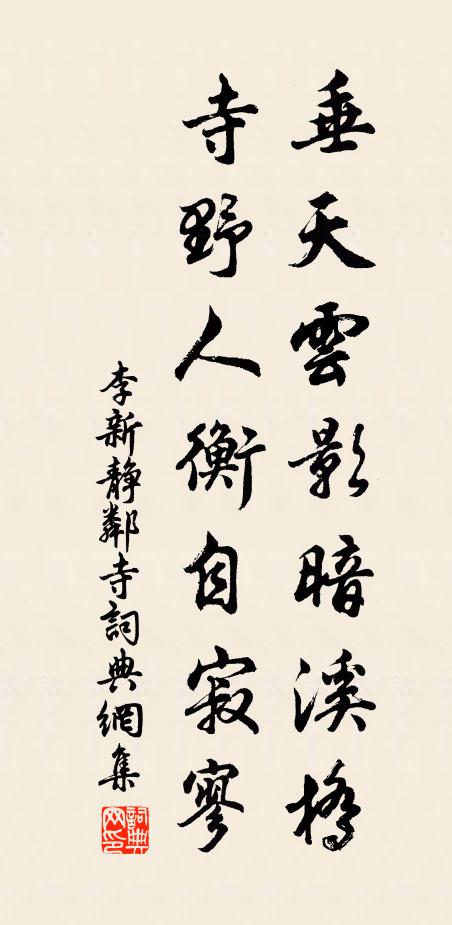 垂天雲影暗溪橋
寺野人衡自寂寥
李新静鄰寺詞典網集
詞典
网印